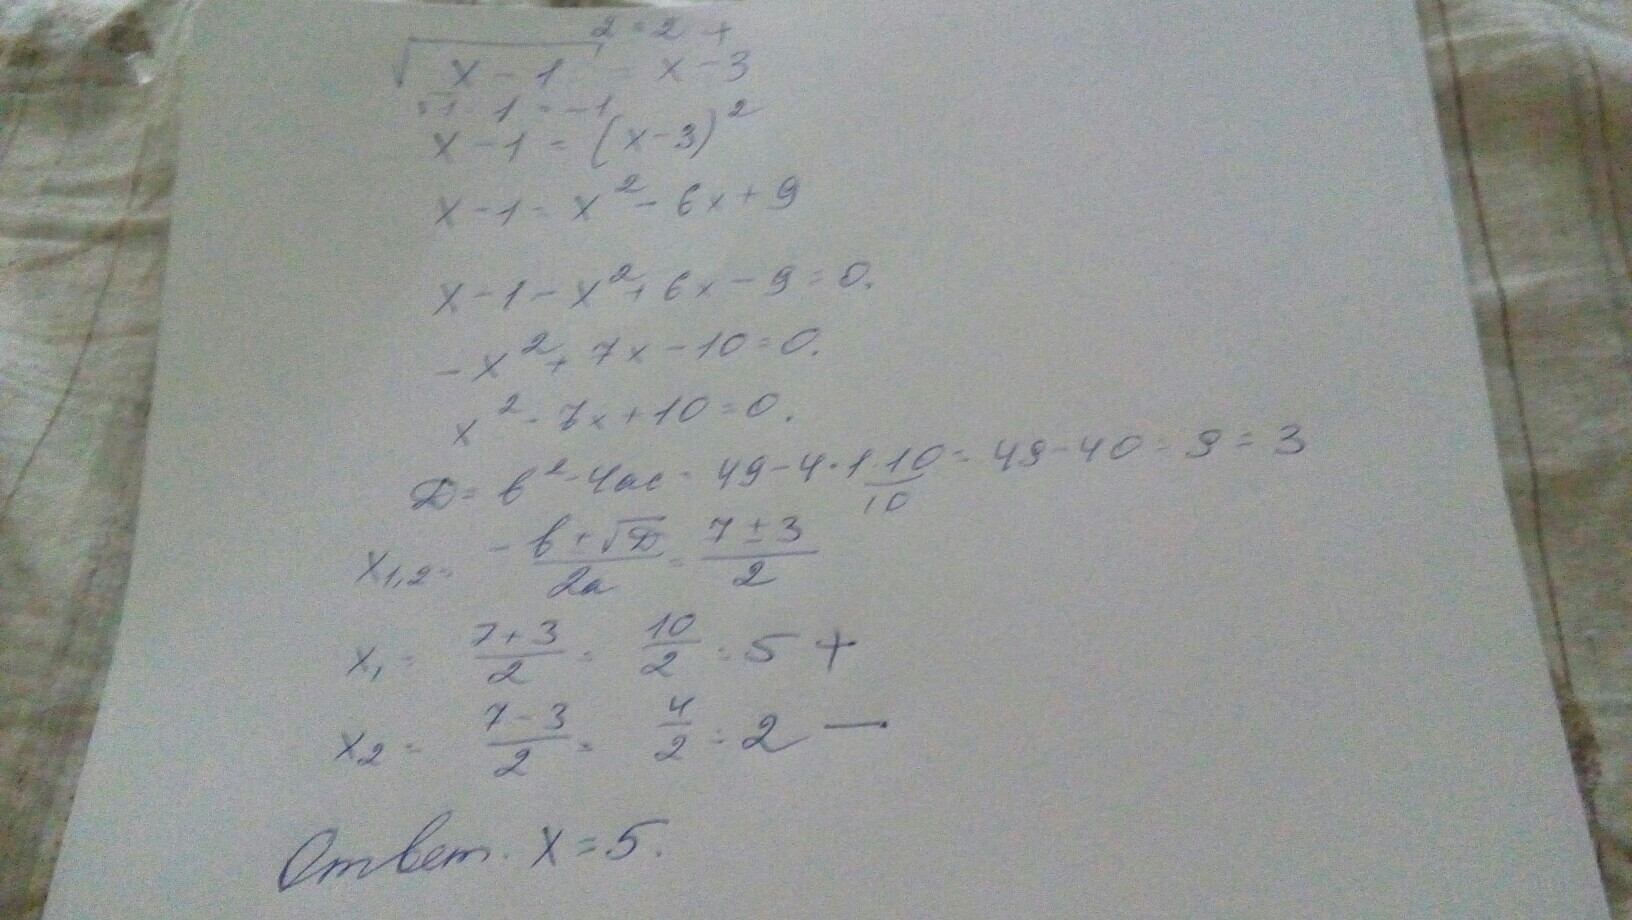 2 = 2 +
√(x - 1) = x - 3
√1 1 = -1
x - 1 = (x - 3)²
x - 1 = x² - 6x + 9
x - 1 - x² + 6x - 9 = 0.
-x² + 7x - 10 = 0.
x² - 7x + 10 = 0.
D = b² - 4ac = 49 - 4 · 1 · 10 = 49 - 40 = 9 = 3
10
x1,2 = (-b + √D)/2a = (7 ± 3)/2
x1 = (7 + 3)/2 = 10/2 = 5 +
x2 = (7 - 3)/2 = 4/2 = 2 —
Ответ. x = 5.